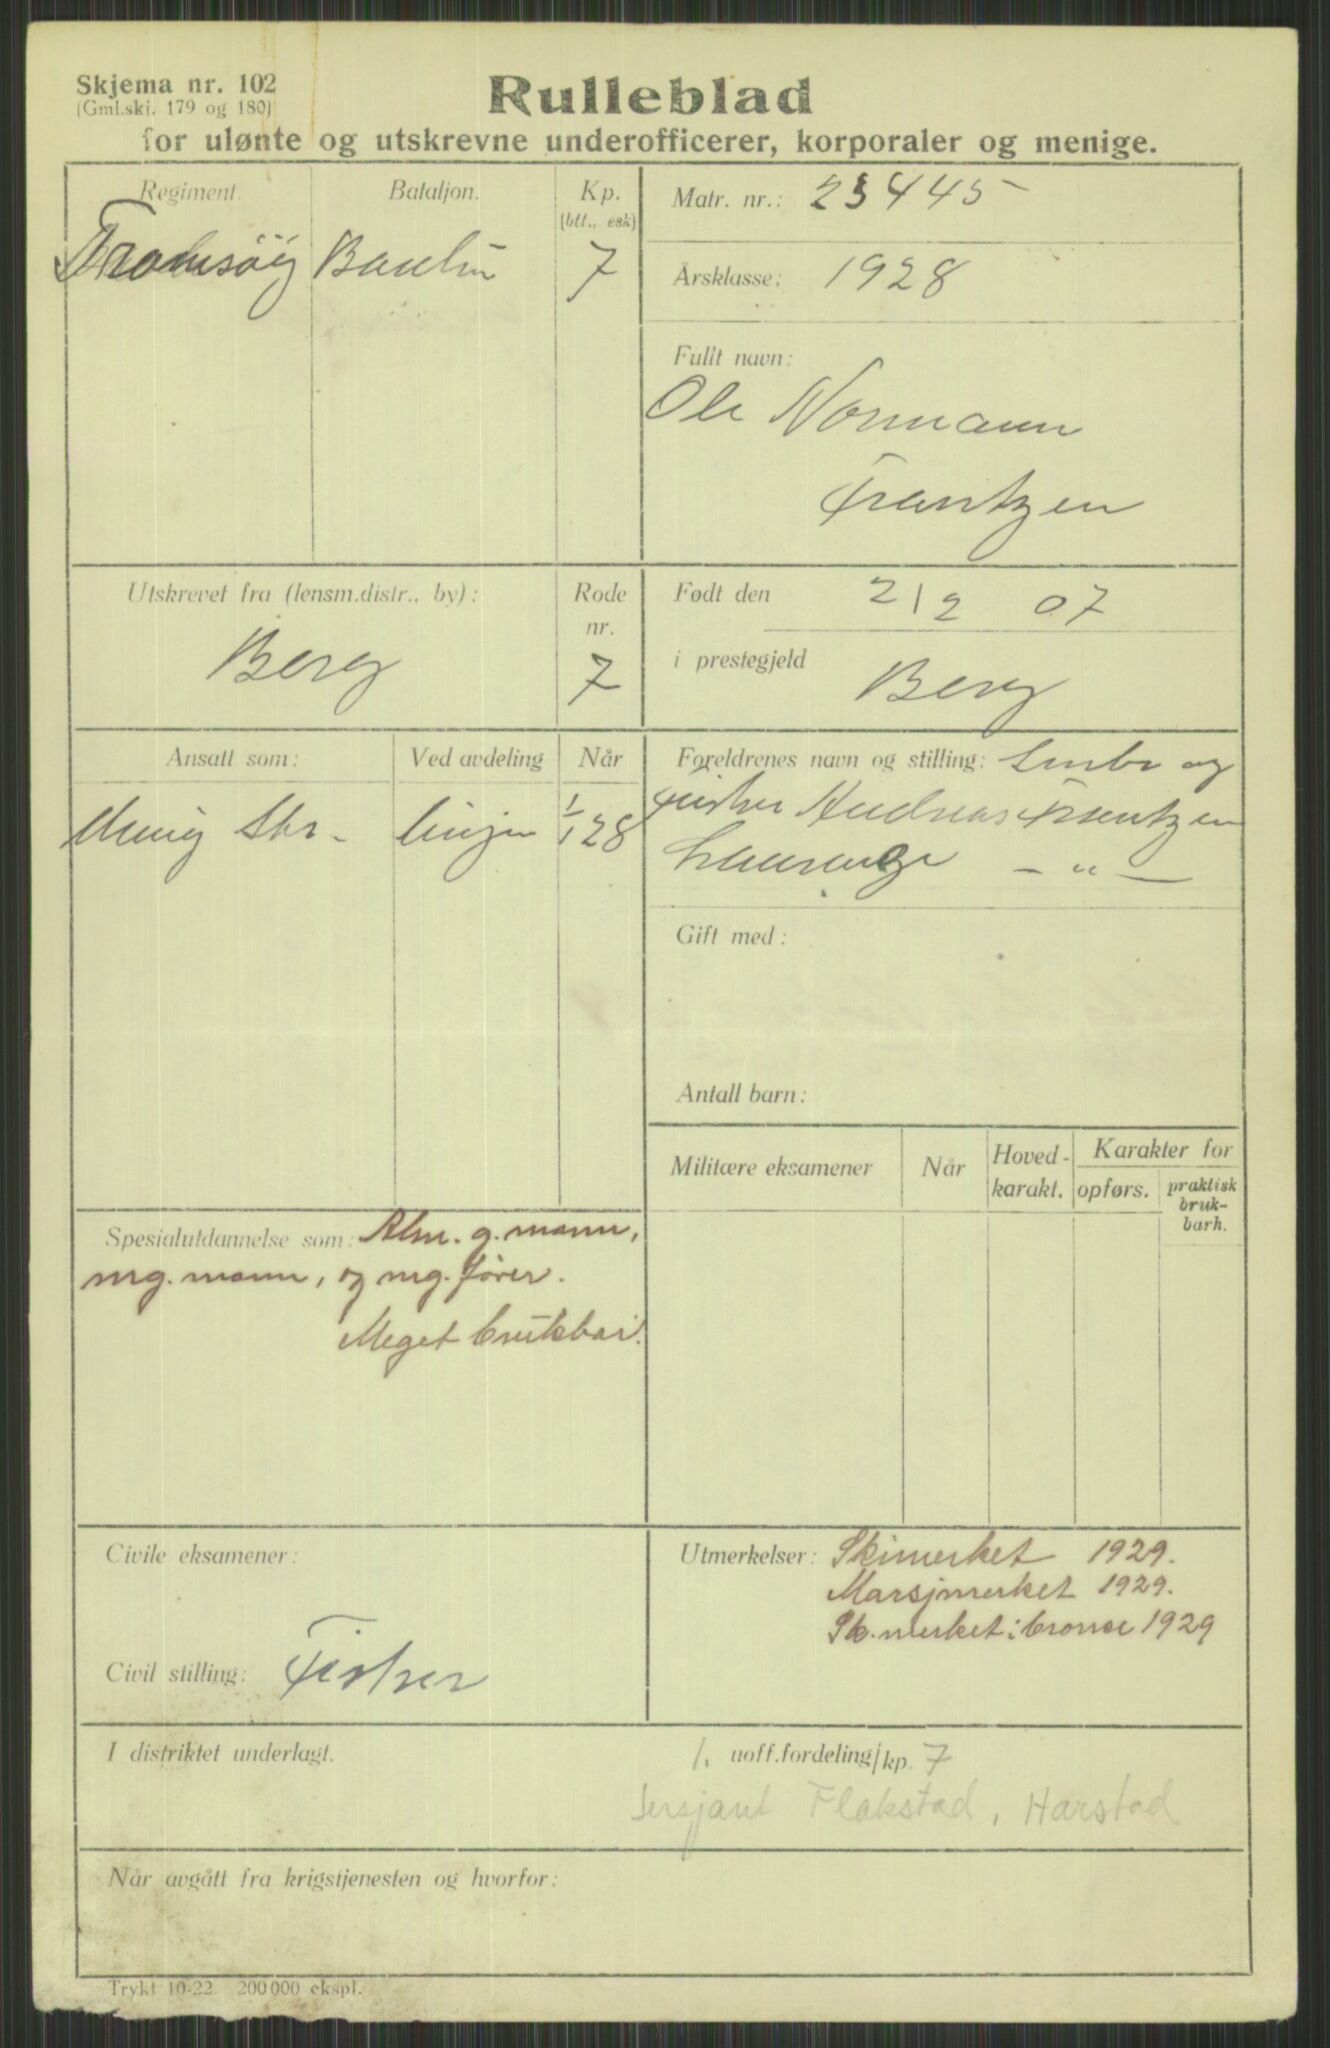 Skjema nr. 102
(Gml.skj. 179 og 180)
Rulleblad
for ulønte og utskrevne underofficerer, korporaler og menige.
Regiment. Bataljon. Kp. (btt., esk)
7
Matr. nr.: 23445
Årsklasse: 1928
Fullt navn:
Ole Normann
Frantzen
Utskrevet fra (lensm.distr., by): Rode nr.
Berg 7
Født den 2/2 07
i prestegjeld Berg
Ansatt som: Ved avdeling Når
Menig Skr. linjen 1/1 28
Foreldrenes navn og stilling: Småbr og
fisker Andreas Frantzen
— " —
Gift med:
Antall barn:
Militære eksamener Når Hoved-karakt. Karakter for
opførs. praktisk bruk-barh.
Spesialutdannelse som: Alm. g. mann,
mg. mann, og mg. fører.
Meget brukbar.
Civile eksamener:
Civil stilling: Fisker
Utmerkelser: Skimerket 1929.
Marsjmerket 1929.
Sk. merket i bronse 1929
I distriktet underlagt. 1. uoff.fordeling/kp. 7
Sersjant Flakstad, Harstad
Når avgått fra krigstjenesten og hvorfor:
Trykt 10-22. 200 000 ekspl.